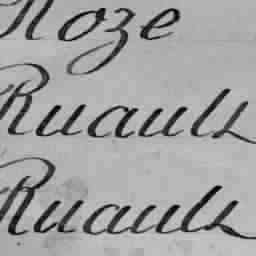 Roze
Ruault
Ruault